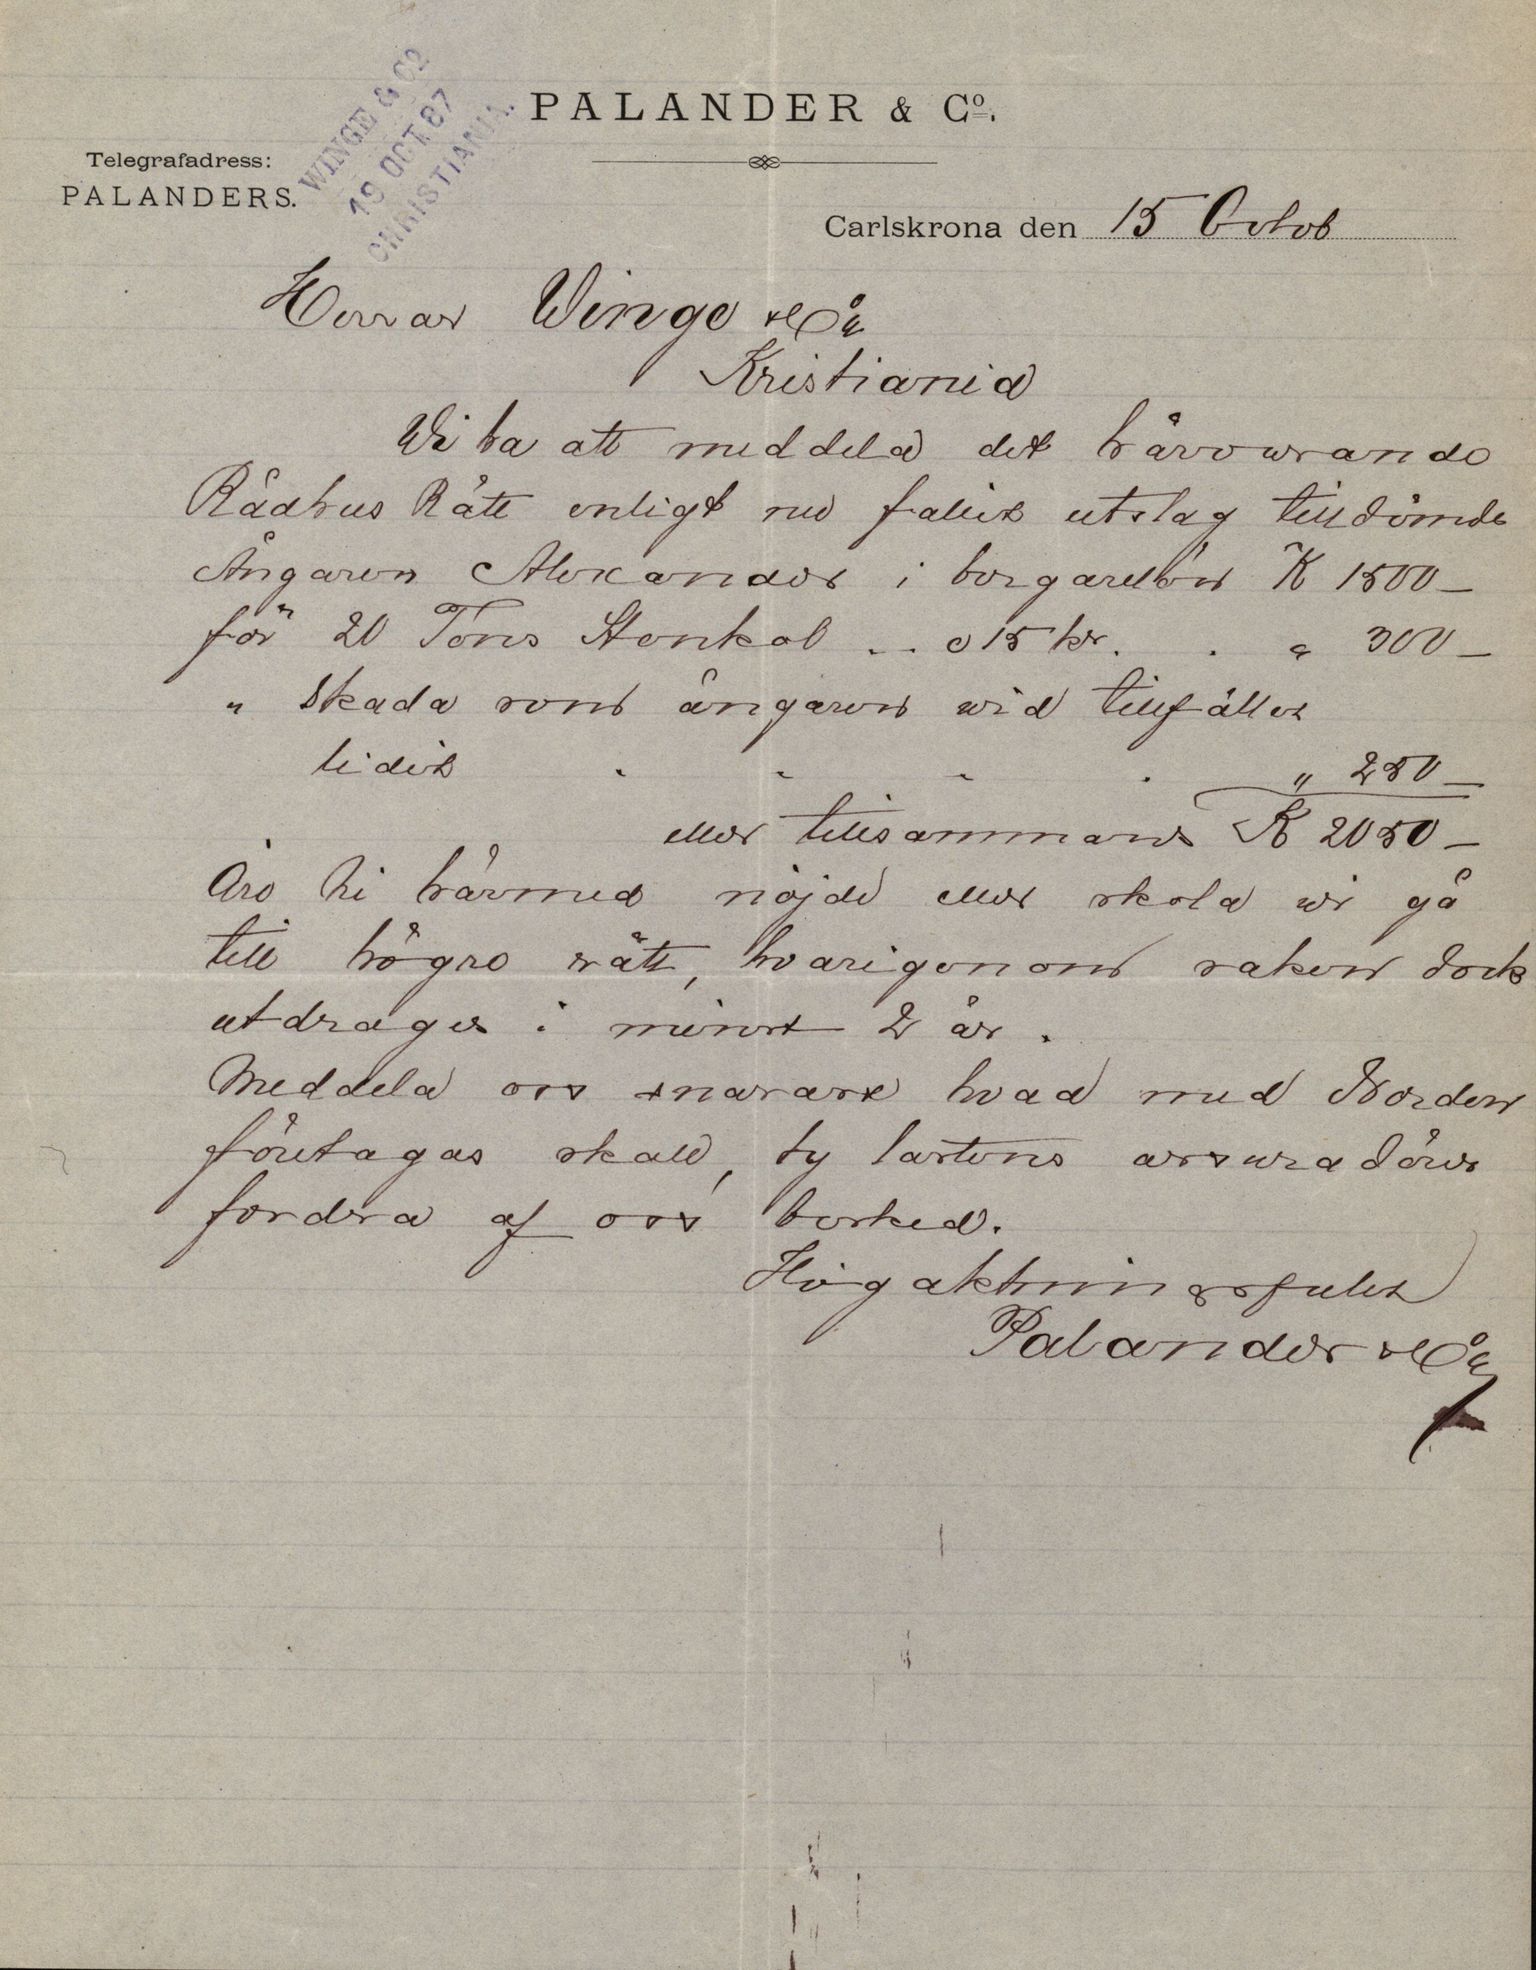 WINGE & Co
19 OCT. 87
CHRISTIANIA.
PALANDER & Co.
Telegrafadress:
PALANDERS.
Carlskrona den 15 Octob
Herrar Winge & Co
Kristiania
Wi ha att meddela det härvarande
Rådhus Rätt enligt nu fallet utslag tilldömde
Ångaren Alexander i bergarelön K 1500 –
för 20 Tons Stenkol .. a 15 kr. . " 300 –
" skada som ångaren wid tillfället
lidit . . . . " 250 –
eller tillsammans K 2050 –
Äro Ni härmed nöjde eller skola wi gå
till högre rätt, hvarigenom saken dock
utdrages i minst 2 år.
Meddela oss snarast hvad med Norden
företagas skall, ty lastens assuradörer
fordra af oss besked.
Högaktningsfullt
Palander & Co